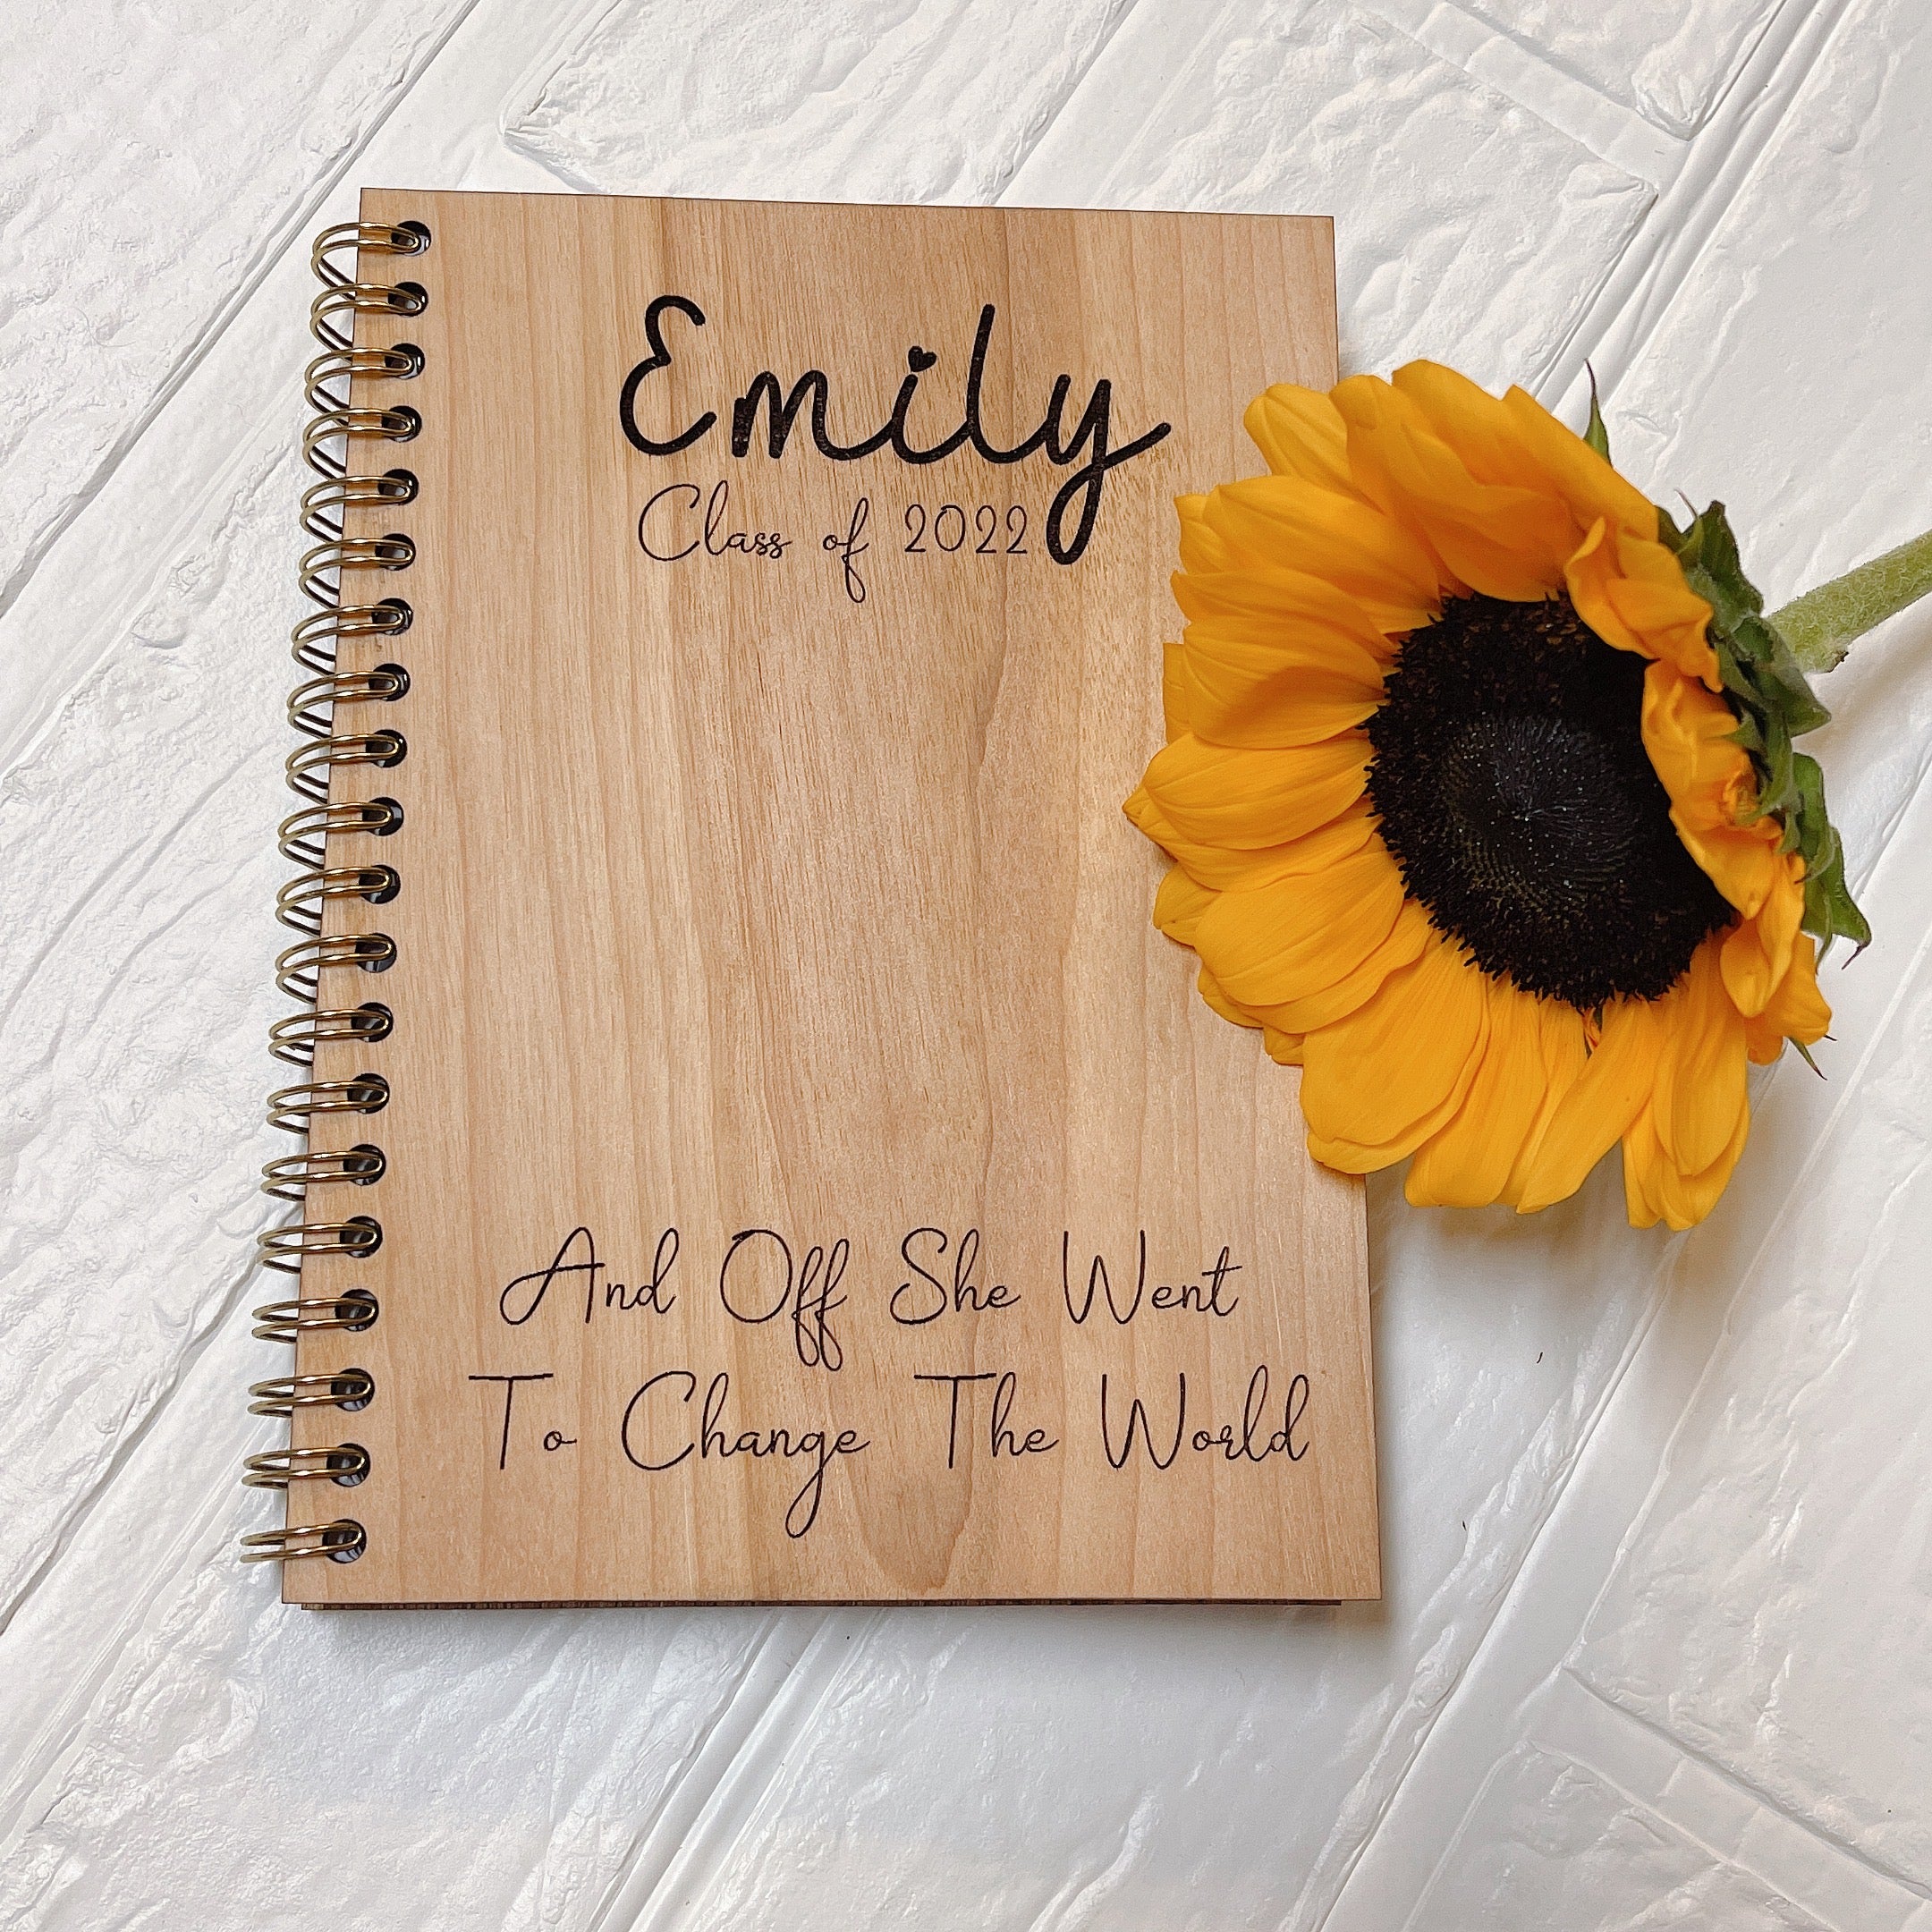 Emily
Class of 2022
And Off She Went
To Change The World